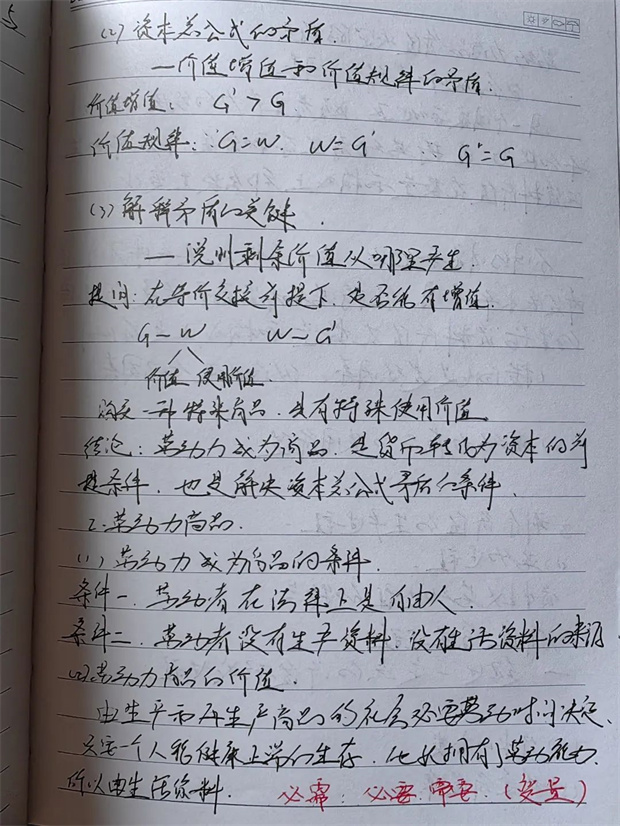 5
(2) 资本总公式的矛盾.
—价值增值和价值规律的矛盾.
价值增值: G'>G
价值规律: G=W. W=G' G'=G
(3) 解释矛盾的关键.
— 说明剩余价值从哪里产生.
提问: 在等价交换前提下, 是否能有增值.
G—W W—G'
价值 使用价值.
一种特殊商品. 具有特殊使用价值.
结论: 劳动力成为商品. 是货币转化为资本的前
提条件. 也是解决资本总公式矛盾的条件.
2. 劳动力商品.
(1) 劳动力成为商品的条件.
条件一. 劳动者在法律上是自由人.
条件二. 劳动者没有生产资料. 没有生活资料的来源
(2) 劳动力商品的价值.
由生产和再生产商品的社会必要劳动时间决定.
只要一个人能健康正常的生存. 他就拥有了劳动能力.
所以由生活资料. 必需. 必要. 需要. (变量)